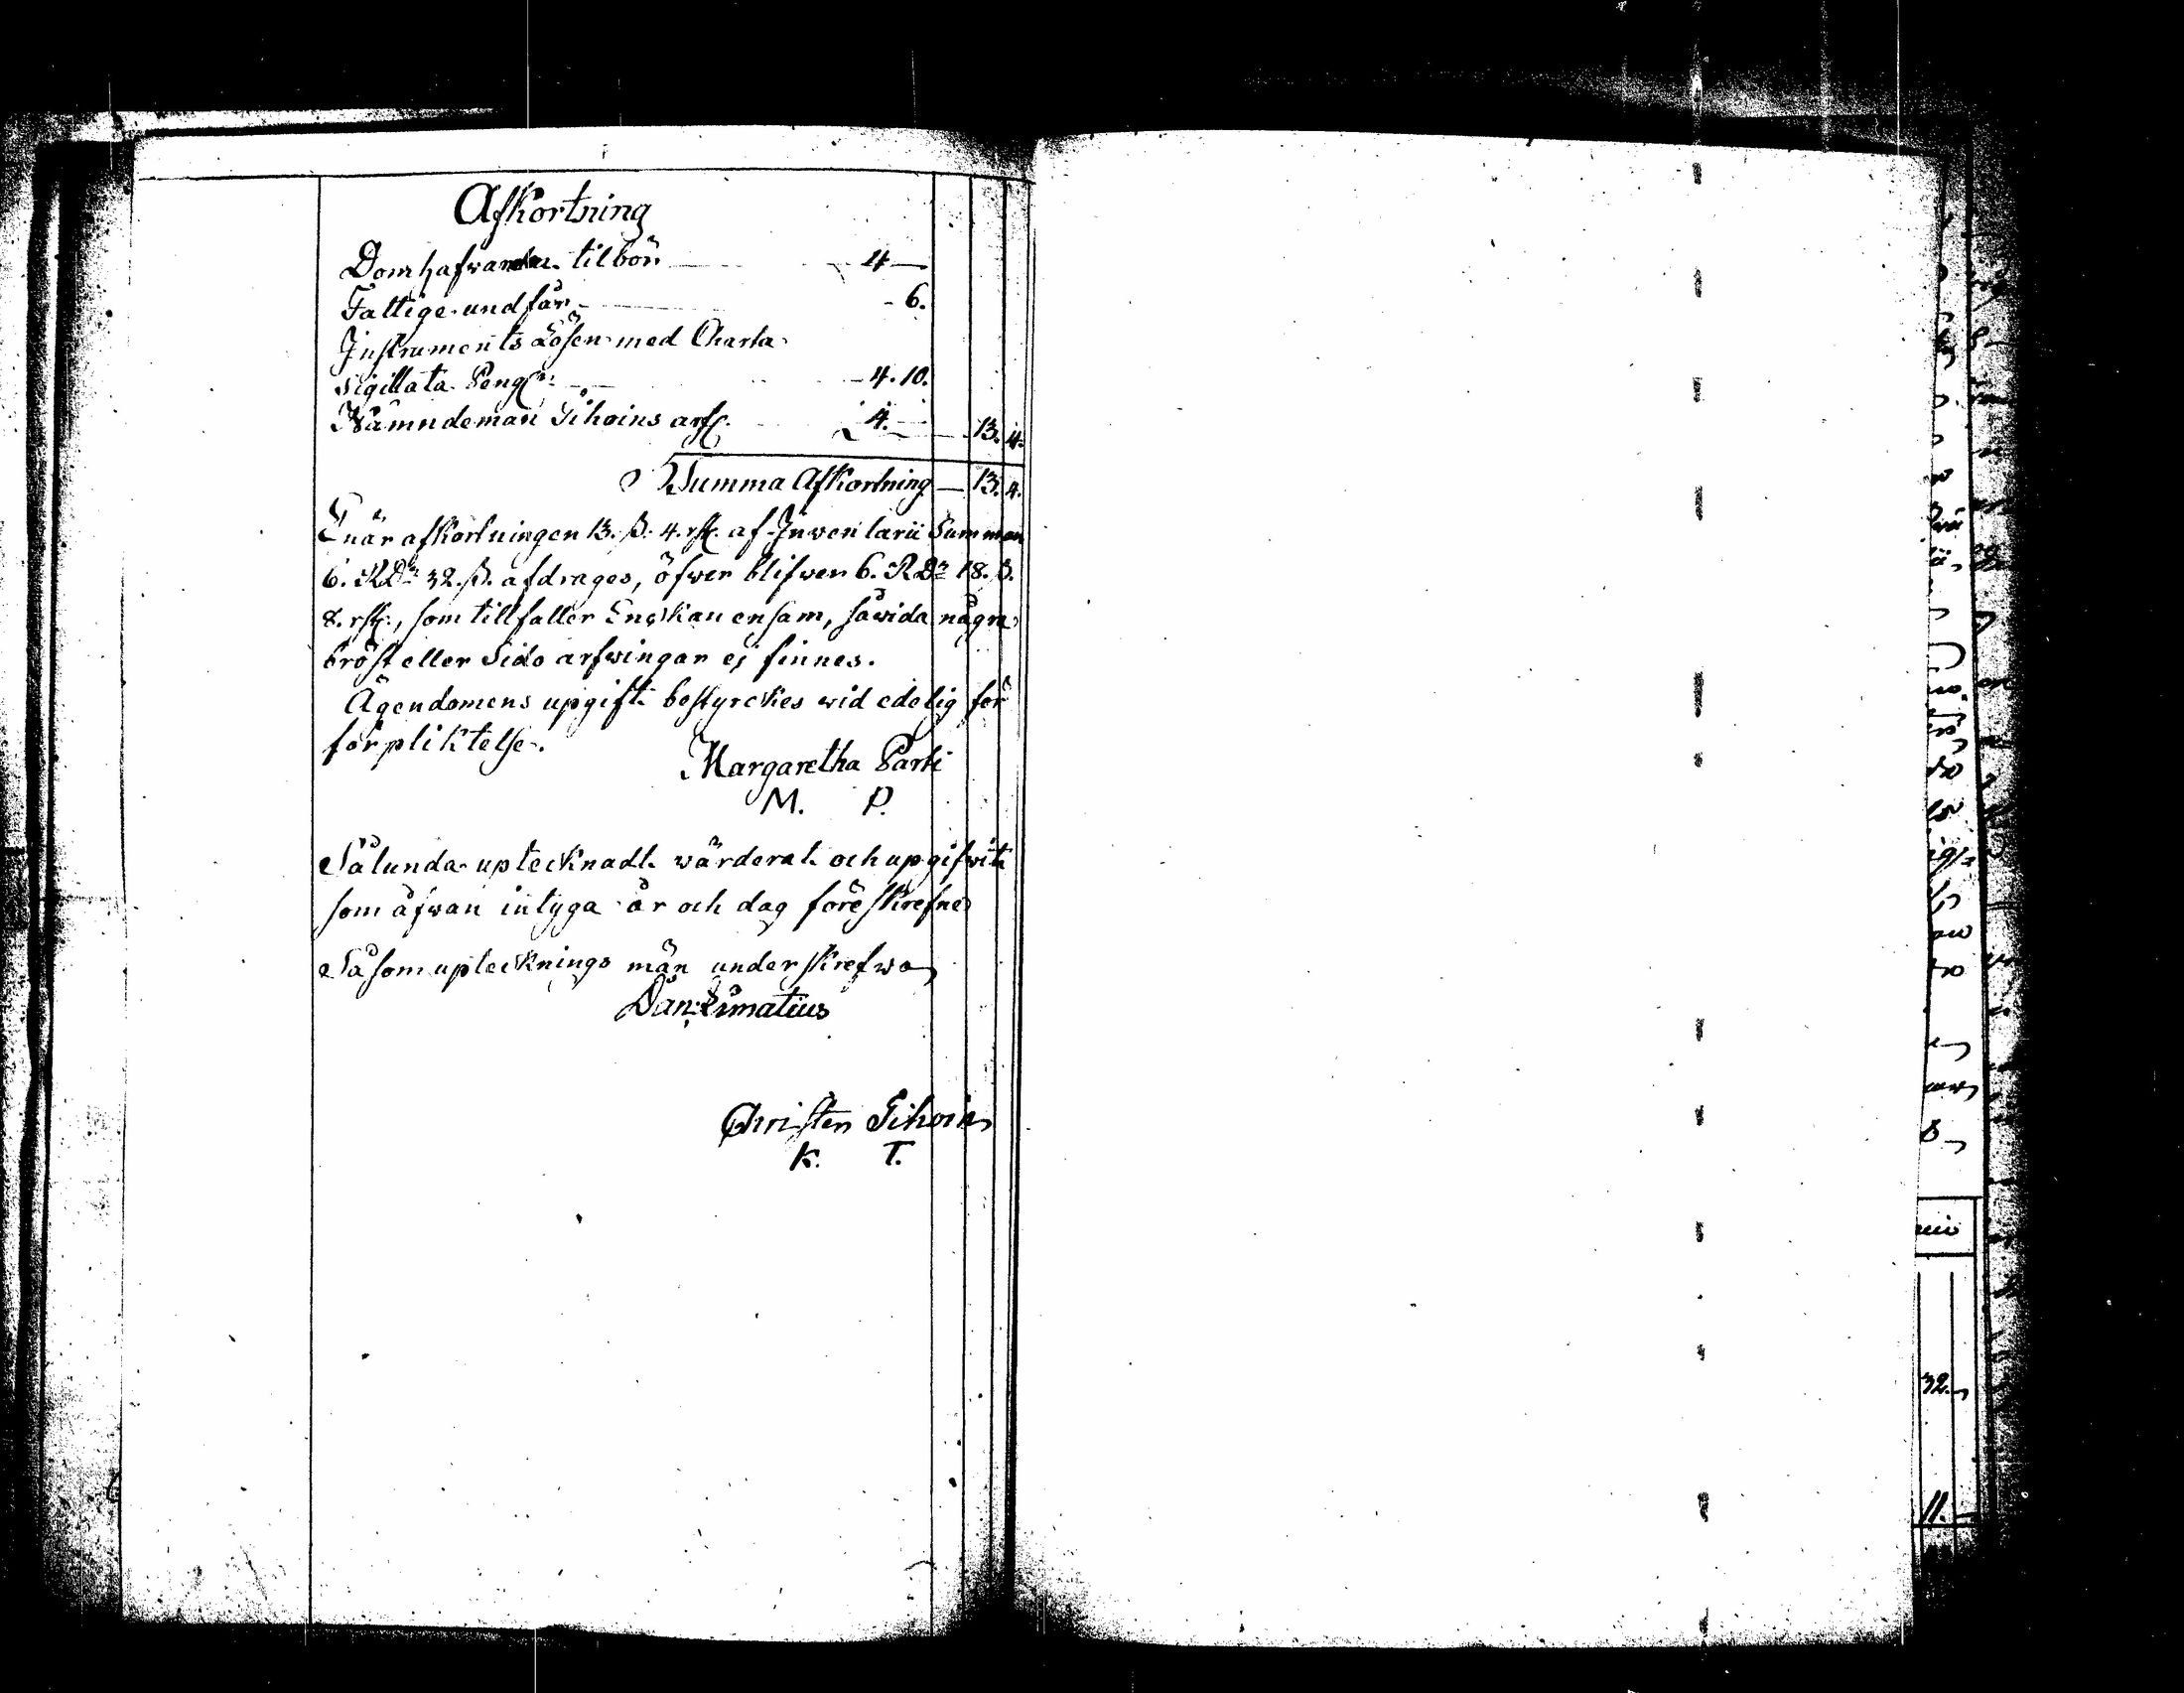 Afkortning
Domhafwanden tilbör — 4 —
Fattige undfår — 6.
Instruments Lösen med Charta
sigillata Peng:r — 4. 10.
Nämndeman Tihoins arf. 4. — 13. 4.
Summa Afkortning — 13. 4.
Enär afkortningen 13. ß. 4. rst. af Inventarii Summan
6. RD:r 32. ß. afdrages, öfwer blifwer 6. RD:r 18. ß.
8. rst., som tillfaller Enckan ensam, såwida några
bröst eller Sido arfwingar ej finnes.
Ägendomens upgift bestyrckes wid edelig för
förpliktelse.
Margaretha Parti
M. P.
Sålunda uptecknadt wärderat och upgifwit
som åfwan intyga år och dag föreskrefne
Såsom uptecknings män underskrefwa
Dan: Limatius
Christer Tihoin
K. T.
32.
11.